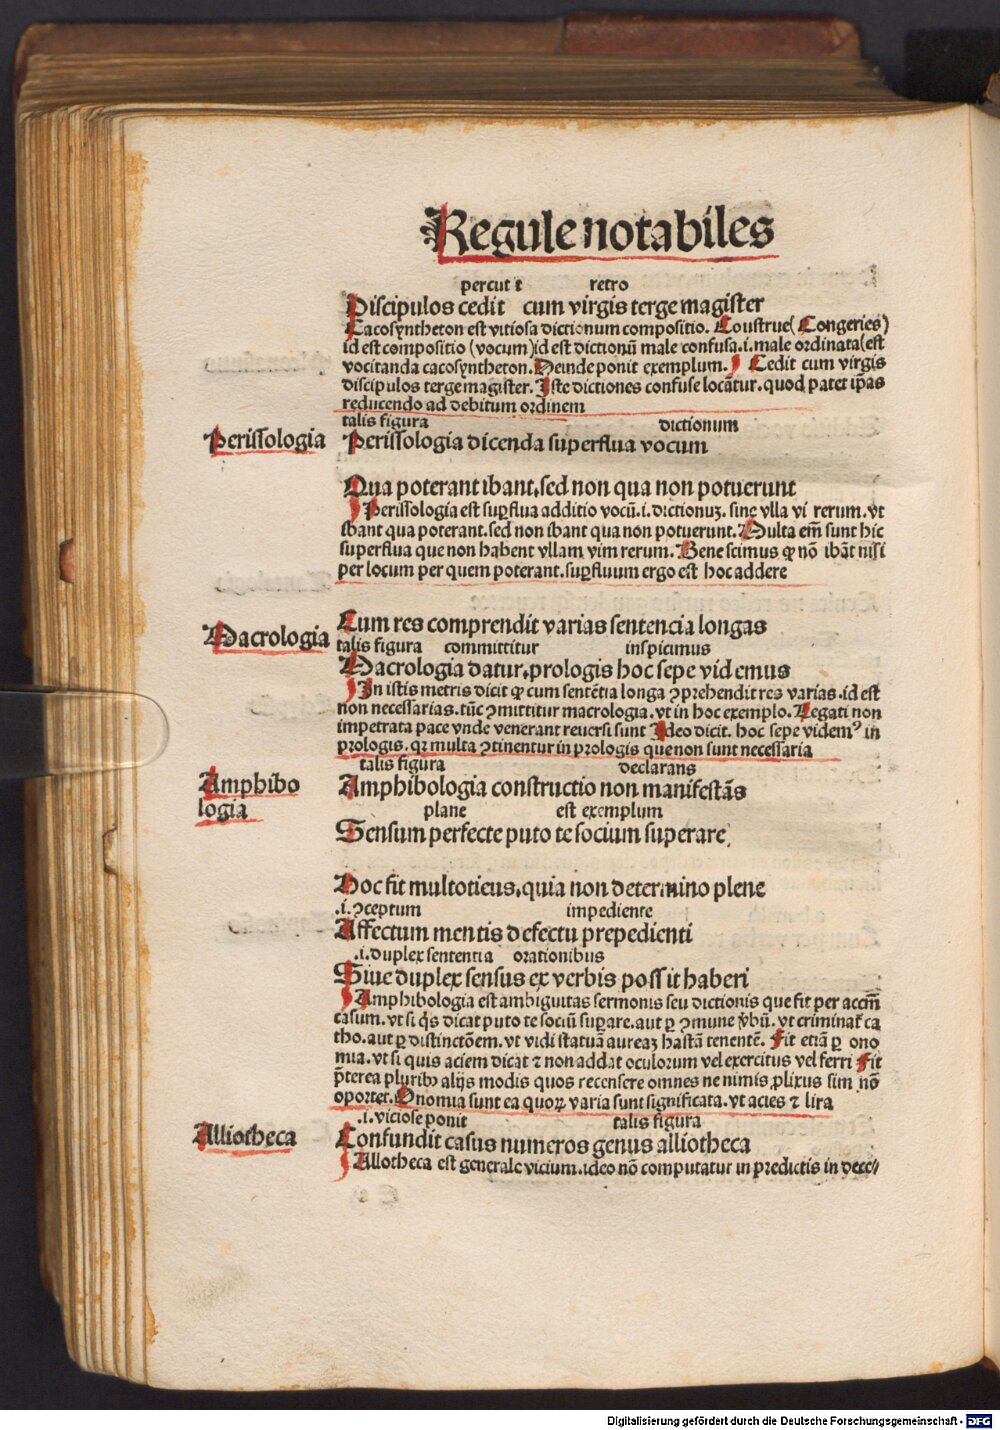 Regule notabiles
percutit retro
Discipulos cedit cum virgis terge magister
Cacosyntheton est vitiosa dictionum compositio. Construe (Congeries)
id est compositio (vocum) id est dictionū male confusa .i. male ordinata (est
vocitanda cacosyntheton. Deinde ponit exemplum. Cedit cum virgis
discipulos terge magister. Iste dictiones confuse locātur. quod patet ip̄as
reducendo ad debitum ordinem
talis figura dictionum
Perissologia
Perissologia dicenda superflua vocum
Qua poterant ibant. sed non qua non potuerunt
Perissologia est suꝑflua additio vocū .i. dictionuꝫ. sine vlla vi rerum. vt
ibant qua poterant. sed non ibant qua non potuerunt. Multa em̄ sunt hic
superflua que non habent vllam vim rerum. Bene scimus ꝙ nō ibāt nisi
per locum per quem poterant. suꝑfluum ergo est hoc addere
Cum res comprendit varias sentencia longas
Macrologia
talis figura committitur inspicimus
Macrologia datur. prologis hoc sepe videmus
In istis metris dicit ꝙ cum sentētia longa ꝯprehendit res varias. id est
non necessarias. tūc ꝯmittitur macrologia. vt in hoc exemplo. Legati non
impetrata pace vnde venerant reuersi sunt Ideo dicit. hoc sepe videmꝰ in
prologis. qꝛ multa ꝯtinentur in prologis que non sunt necessaria
talis figura declarans
Amphibo
logia
Amphibologia constructio non manifestās
plane est exemplum
Sensum perfecte puto te socium superare
Hoc fit multoticus. quia non determino plene
.i. ꝯceptum impediente
Affectum mentis defectu prepedienti
.i. duplex sententia orationibus
Siue duplex sensus ex verbis possit haberi
Amphibologia est ambiguitas sermonis seu dictionis que fit per accm̄
casum. vt si q̇s dicat puto te sociū suꝑare. aut ꝑ ꝯmune v̇bū. vt criminat̄ ca
tho. aut ꝑ distinctōem. vt vidi statuā aureaꝫ hastā tenentē. Fit etiā ꝑ ono
mia. vt si quis aciem dicat ⁊ non addat oculorum vel exercitus vel ferri Fit
p̄terea pluribꝰ alijs modis quos recensere omnes ne nimis ꝓlixus sim nō
oportet. Onomia sunt ea quoꝝ varia sunt significata. vt acies ⁊ lira
.i. viciose ponit talis figura
Alliotheca
Confundit casus numeros genus alliotheca
Allotheca est generale vicium. ideo nō computatur in predictis in dece/
Digitalisierung gefördert durch die Deutsche Forschungsgemeinschaft - DFG